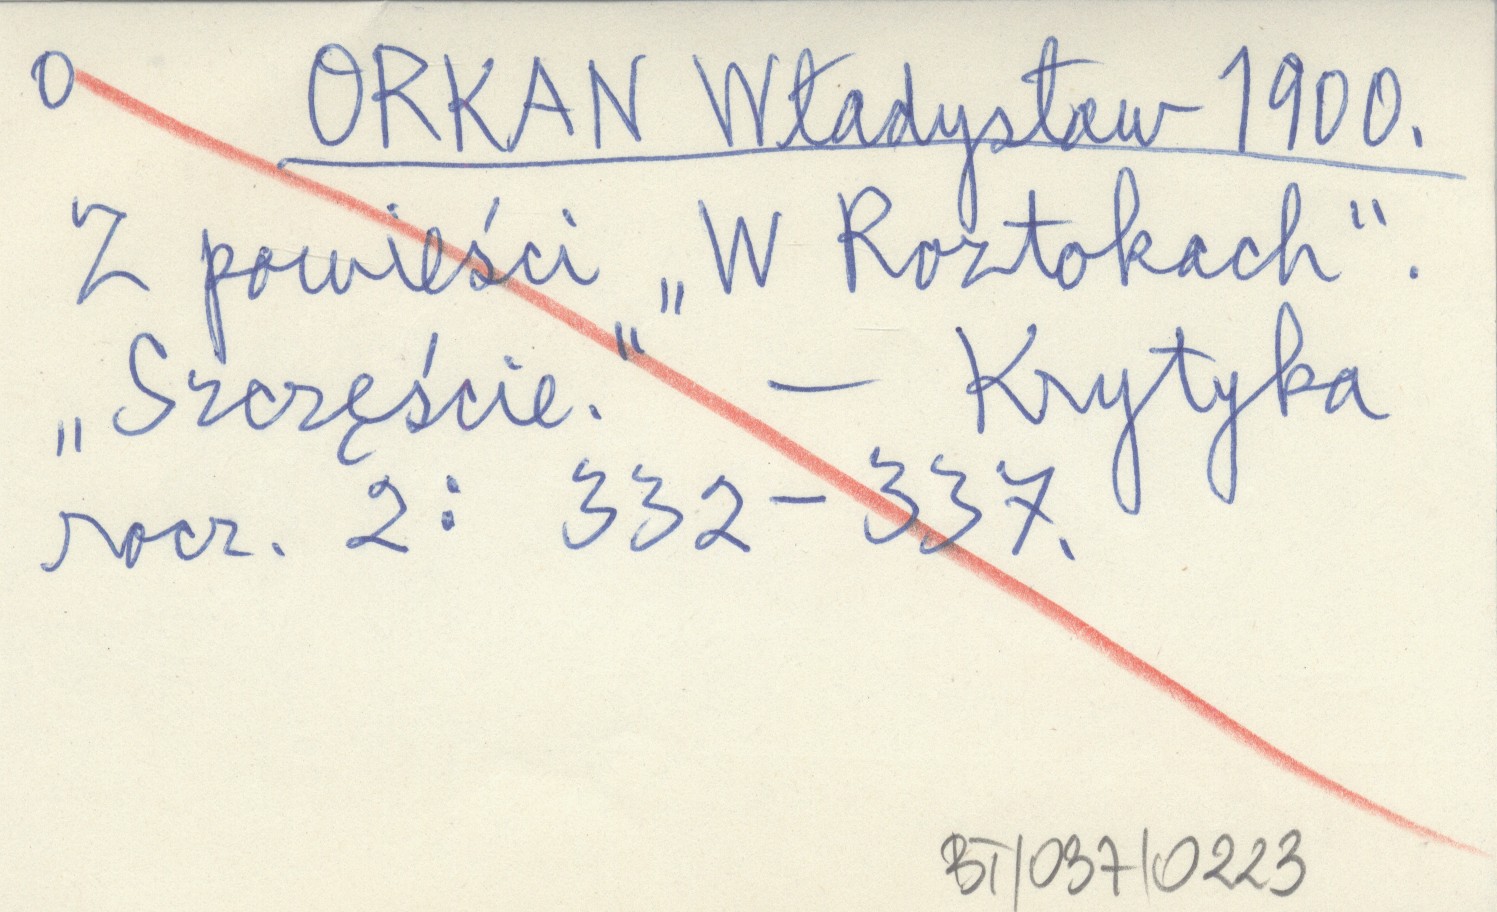 O ORKAN Władysław 1900.
Z powieści „W Roztokach".
„Szczęście." — Krytyka
rocz. 2: 332-337.
BT/037/0223